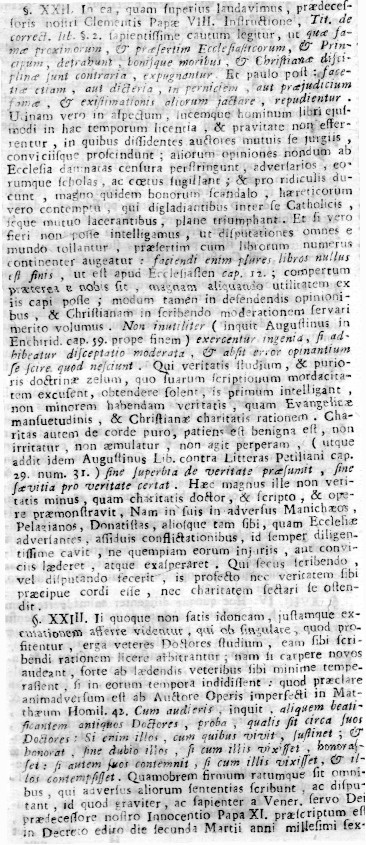 §. XXII. In ea, quam superius laudavimus, prædeces-
soris nostri Clementis Papæ VIII. Instructione, Tit. de
correct. lib. §. 2. sapientissime cautum legitur, ut quæ fa-
mæ proximorum, & præsertim Ecclesiasticorum, & Prin-
cipum, detrahunt, bonisque moribus, & Christianæ disci-
plinæ sunt contraria, expugnantur. Et paulo post: face-
tiæ etiam, aut dicteria, in perniciem, aut præjudicium
famæ, & existimationis aliorum jactatæ, repudientur.
Utinam vero in aspectum, lucemque hominum libri ejus-
modi in hac temporum licentia, & pravitate non effer-
rentur, in quibus dissidentes auctores mutuis se jurgiis,
conviciisque proscindunt; aliorum opiniones nondum ab
Ecclesia damnatas censura perstringunt, adversarios, eo-
rumque scholas, ac cœtus sugillant; & pro ridiculis du-
cunt, magno quidem bonorum scandalo, hæreticorum
vero contemptu, qui digladiantibus inter se Catholicis,
seque mutuo lacerantibus, plane triumphant. Et si vero
fieri non posse intelligamus, ut disputationes omnes e
mundo tollantur, præsertim cum librorum numerus
continenter augeatur: faciendi enim plures libros nullus
est finis, ut est apud Ecclesiasten cap. 12.; compertum
præterea e nobis sit, magnam aliquando utilitatem ex
iis capi posse; modum tamen in defendendis opinioni-
bus, & Christianam in scribendo moderationem servari
merito volumus. Non inutiliter (inquit Augustinus in
Enchirid. cap. 59. prope finem) exercentur ingenia, si ad-
hibeatur disceptatio moderata, & absit error opinantium
se scire quod nesciunt. Qui veritatis studium, & purio-
ris doctrinæ zelum, quo suarum scriptionum mordacita-
tem excusent, obtendere solent, is primum intelligant,
non minorem habendam veritatis, quam Evangelicæ
mansuetudinis, & Christianæ charitatis rationem, Cha-
ritas autem de corde puro, patiens est benigna est, non
irritatur, non æmulatur, non agit perperam, (utque
addit idem Augustinus Lib. contra Litteras Petiliani cap.
29. num. 31.) sine superbia de veritate præsumit, sine
sævitia pro veritate certat. Hæc magnus ille non veri-
tatis minus, quam charitatis doctor, & scripto, & ope-
re præmonstravit, Nam in suis in adversus Manichæos,
Pelagianos, Donatistas, aliosque tam sibi, quam Ecclesiæ
adversantes, assiduis conflictationibus, id semper diligen-
tissime cavit, ne quempiam eorum injuriis, aut convi-
ciis læderet, atque exasperaret. Qui secus scribendo,
vel disputando fecerit, is profecto nec veritatem sibi
præcipue cordi esse, nec charitatem sectari se osten-
dit.
§. XXIII. Ii quoque non satis idoneam, justamque ex-
cusationem afferre videntur, qui ob singulare, quod pro-
fitentur, erga veteres Doctores studium, eam sibi scri-
bendi rationem licere arbitrantur; nam si carpere novos
audeant, forte ab lædendis veteribus sibi minime tempe-
rassent, si in eorum tempora incidissent: quod præclare
animadversum est ab Auctore Operis imperfecti in Mat-
thæum Homil. 42. Cum audieris, inquit, aliquem beati-
ficantem antiquos Doctores, proba, qualis sit circa suos
Doctores: Si enim illos, cum quibus vivit, sustinet; &
honorat, sine dubio illos, si cum illis vixisset, honoras-
set: si autem suos contemnit, si cum illis vixisset, & il-
los contempsisset. Quamobrem firmum ratumque sit omni-
bus, qui adversus aliorum sententias scribunt, ac dispu-
tant, id quod graviter, ac sapienter a Vener. servo Dei
prædecessore nostro Innocentio Papa XI. præscriptum est
in Decreto edito die secunda Martii anni millesimi sex-